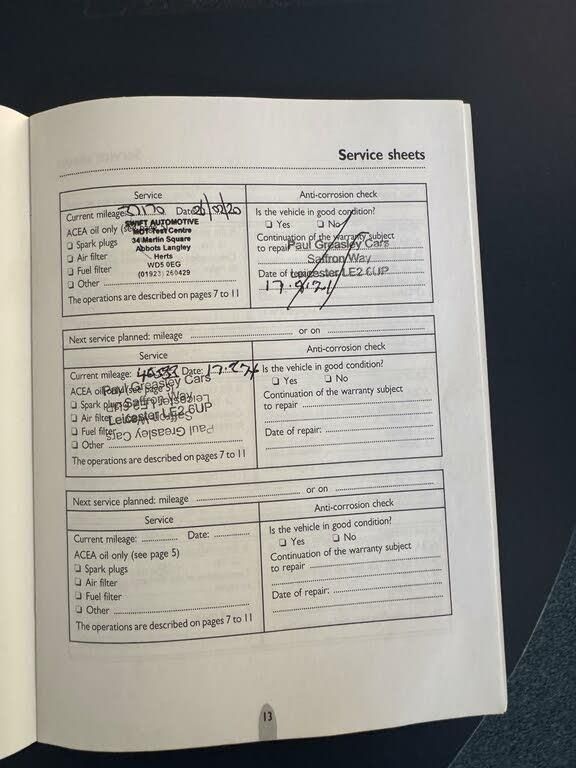 Service sheets
Service
Anti-corrosion check
Current mileage: 37170 Date: 26/02/20
Is the vehicle in good condition?
ACEA oil only (see page 5)
Yes No
SWIFT AUTOMOTIVE
MOT Test Centre
34 Marlin Square
Abbots Langley
Herts
WD5 0EG
(01923) 260429
Spark plugs
Air filter
Fuel filter
Other
The operations are described on pages 7 to 11
Continuation of the warranty subject
to repair
Paul Greasley Cars
Saffron Way
Leicester LE2 6UP
Date of repair:
Next service planned: mileage or on
Service
Anti-corrosion check
Current mileage: Date:
Is the vehicle in good condition?
ACEA oil only (see page 5)
Yes No
Paul Greasley Cars
Saffron Way
Leicester LE2 6UP
Paul Greasley Cars
Saffron Way
Leicester LE2 6UP
Spark plugs
Air filter
Fuel filter
Other
The operations are described on pages 7 to 11
Continuation of the warranty subject
to repair
Date of repair:
Next service planned: mileage or on
Service
Anti-corrosion check
Current mileage: Date:
Is the vehicle in good condition?
ACEA oil only (see page 5)
Yes No
Spark plugs
Air filter
Fuel filter
Other
The operations are described on pages 7 to 11
Continuation of the warranty subject
to repair
Date of repair:
13